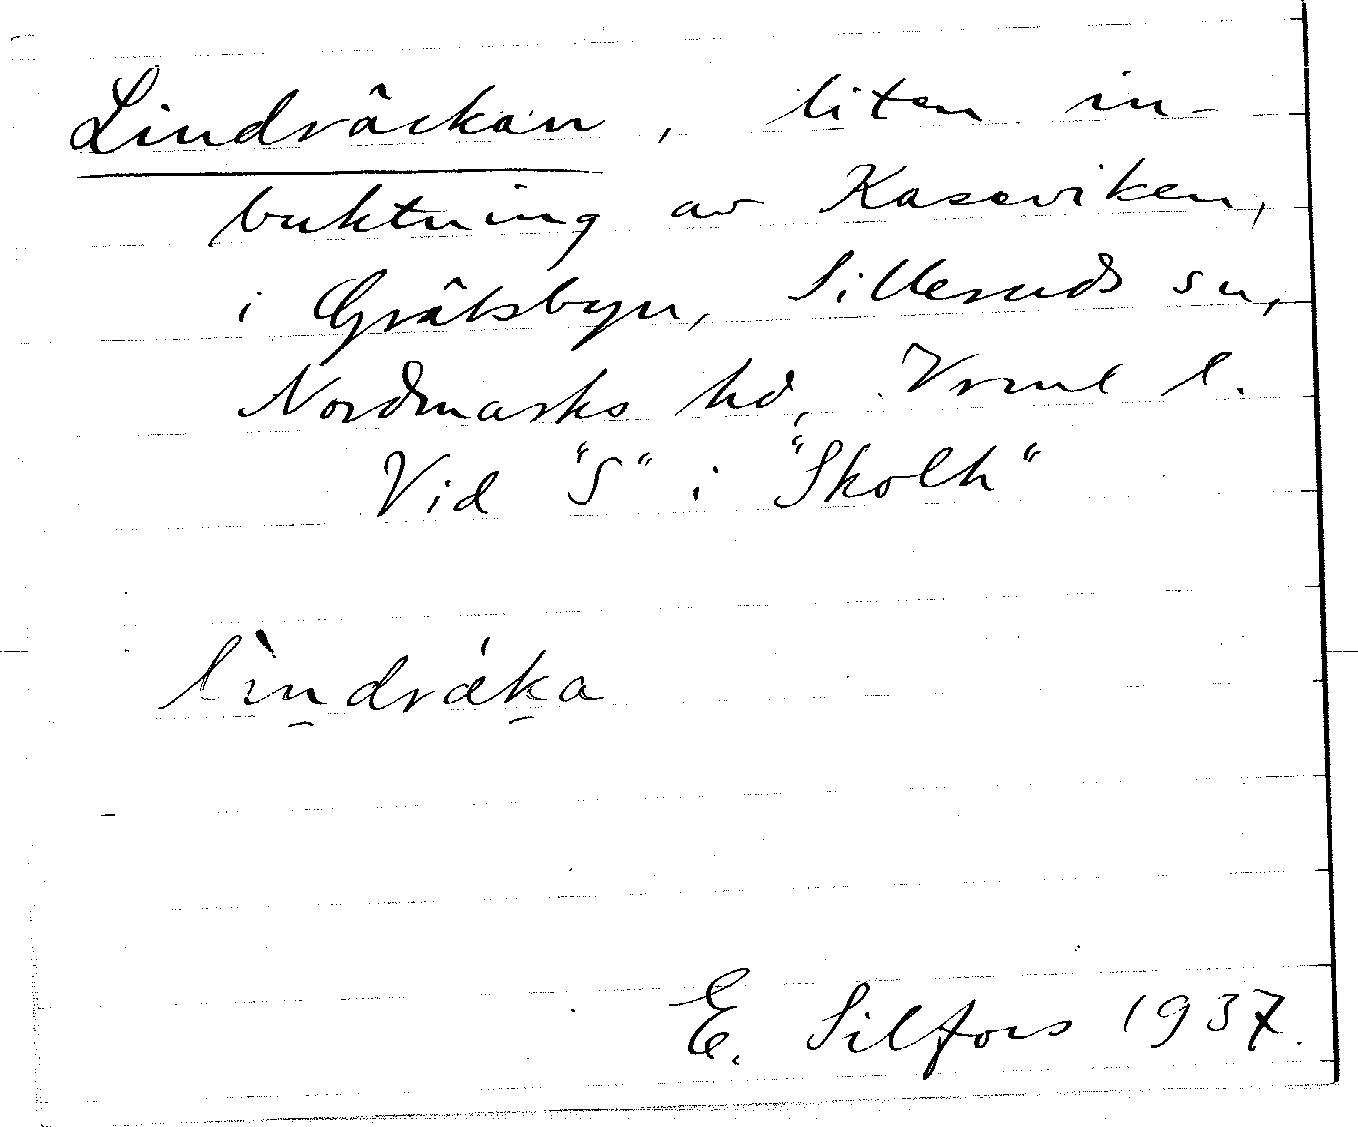 Lindråckan, liten in-
buktning av Kaseviken,
i Gråtsbyn, Silleruds sn,
Nordmarks hd, Vrml l.
Vid "S" i "Skolh"
lìndrá̊ka
E. Silfors 1937.